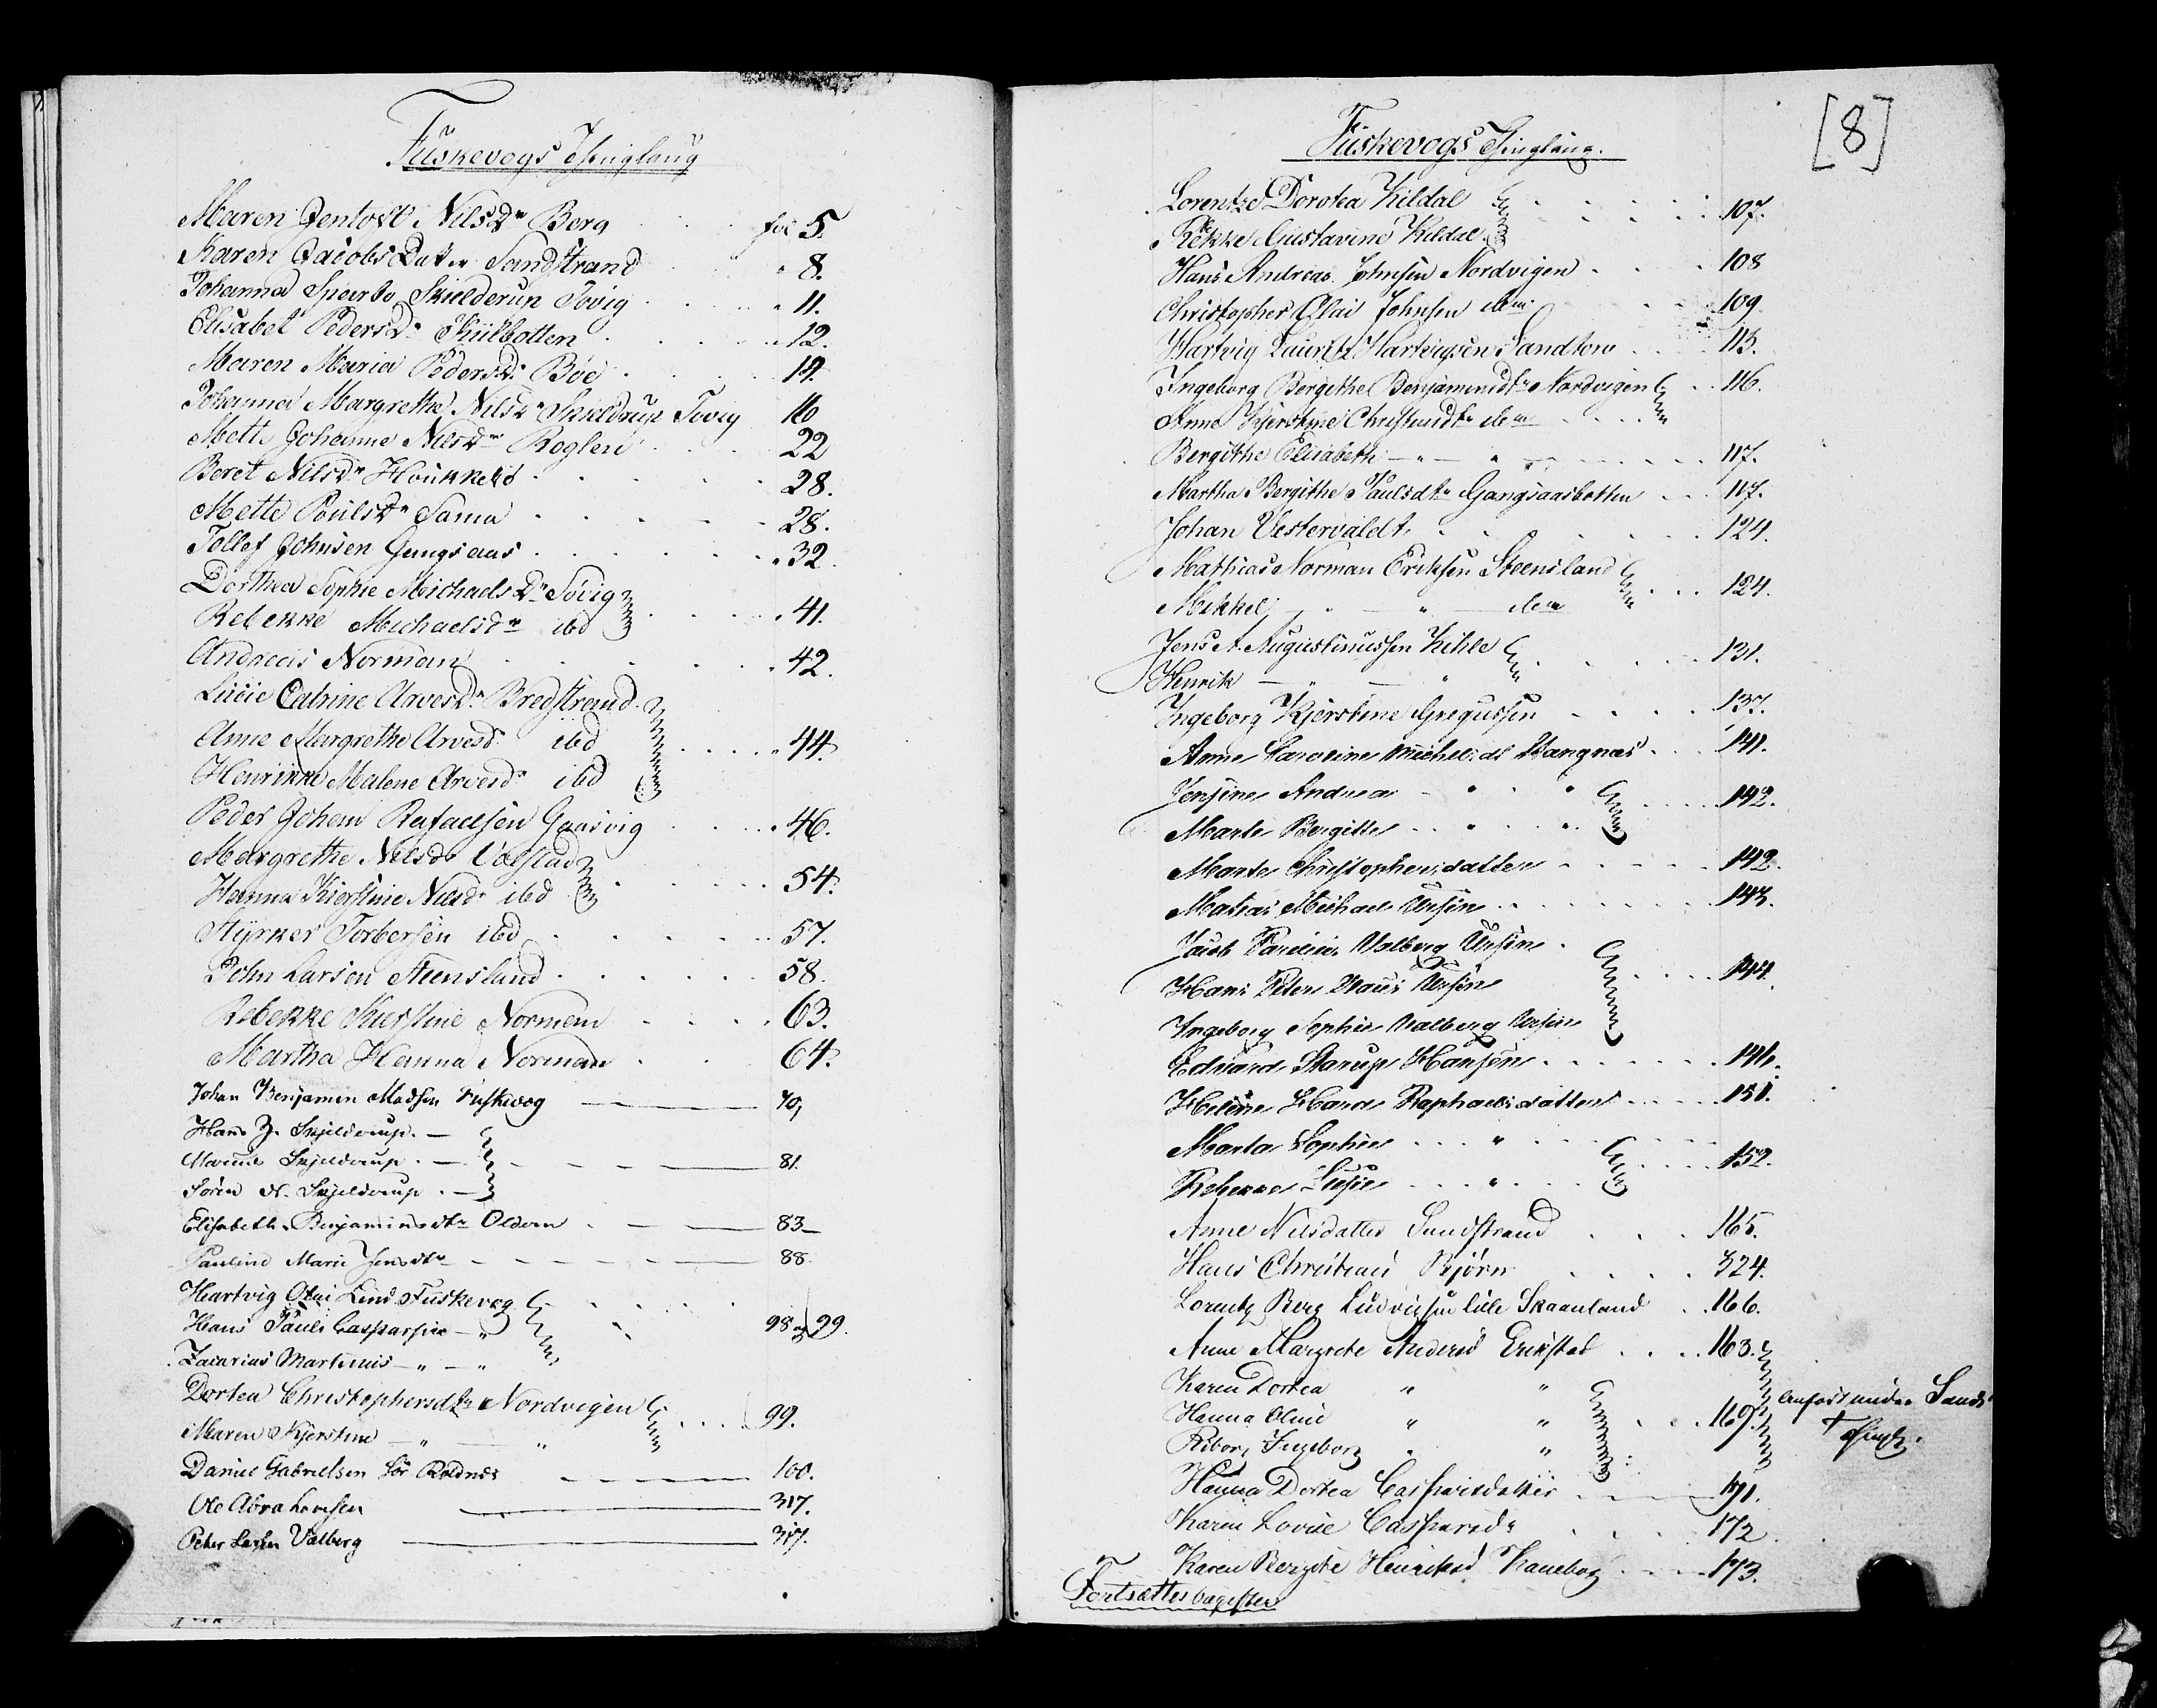 Fuskevogs Thinglaug
Maren Jentost Nilsdr Berg fol 5.
Karen Jacobs Datr Sandstrand " 8.
Johanna Skielderup Tovig " 11.
Elisabet Pedersdr Kulbotten " 12.
Maren Maria Pedersdr Böe 14.
Johanna Margrethe Nilsdr Skieldrup Tovig 16
Mette Johanne Nilsdr Roglen 22
Beret Nilsdr 28.
Mette Poulsdr Sama 28.
Tollef Johnsen Gangsaas " 32.
Dorthea Sophie Michaelsdr Sövig
Rebekke Michaelsdr ibd " 41.
Andreas Norman " 42.
Lucie Catrine Arvesdr Bredstrand
Anne Margrethe Arvesd ibd " 44.
Henrikke Malene Arvesdr ibd
Peder Johan Rafaelsen Gaasvig " 46.
Margrethe Nilsdr Volstad
Hanna Kierstine Nilsdr ibd 54.
Styrker Torbersen ibd 57.
John Larsen Steensland 58.
Rebekke Kierstine Norman 63.
Martha Hanna Norman 64.
Johan Benjamin Madsen Fuskevog 70,
Hans J. Skjelderup. —
Marcus Skjelderup. — 81.
Sören N. Skjelderup. —
Elisabeth Benjaminsdtr Oldern 83 —
Pauline Marie Jensdtr 88.
Hartvig Olai Lind Fuskevog
Hans Pauli Casparsen — " 98 og 99.
Zacarias Martinus — " — "
Dortea Christophersdtr Nordvigen 99.
Maren Kjerstine — " — "
Daniel Gabrielsen Sör Roldnes 100.
Ole Abrahamsen 317.
Peter Larsen Valberg 317.
Fuskevogs Thinglaug.
[8]
Lorentze Dorotea Kildal 107.
Rekke Gustavine Kildal
Hans Andreas Johnsen Nordvigen 108
Christopher Olai Johnsen ibm 109
Hartvig Lauritz Hartvigsen Sandtorv 113.
Ingeborg Bergithe Benjamindtr Nordvigen 116.
Anne Kjerstine Christiandtr ibm
Bergithe Elisabeth — " — " 117.
Martha Bergithe Paulsdtr Gangsaasbotten 117.
Johan Vestervaldt 124.
Mathias Norman Eriksen Steensland
Mikkel — " — " — ibm 124.
Jens A. Augustinussen Kihle
Henrik — " — " 131.
Ingeborg Kjerstine Gregussen 137.
Anne Caroline Michelsdr Stangnæs 141.
Jensine Andrea " " 142.
Marte Bergitte " "
Marte Christophersdatter 142.
Matias Michael Ursin 143.
Jacob Valberg Ursin
Hans Peter Ursin 144.
Ingeborg Sophie Valberg Ursin
Edvard Starup Hansen 146.
Helene Raphaelsdatter 151.
Marta Sophie "
Rebekka Lusie " 152.
Anne Nilsdatter Sandstrand 165.
Hans Christian Björn 324.
Lorentz Berg Ludvigsen lille Skaanland 166.
Anne Margrete Andersd Erikstad 163.
Karen Dortea " "
Hanna Oline " " 169.
Riborg Ingeborg " "
Anfört under Sands
Thingl.
Hanna Dortea Casparsdatter 171.
Karen Lovise Casparsdr 172.
Karen Bergite Henriksd Kanebog 173.
Fortsættes bagefter